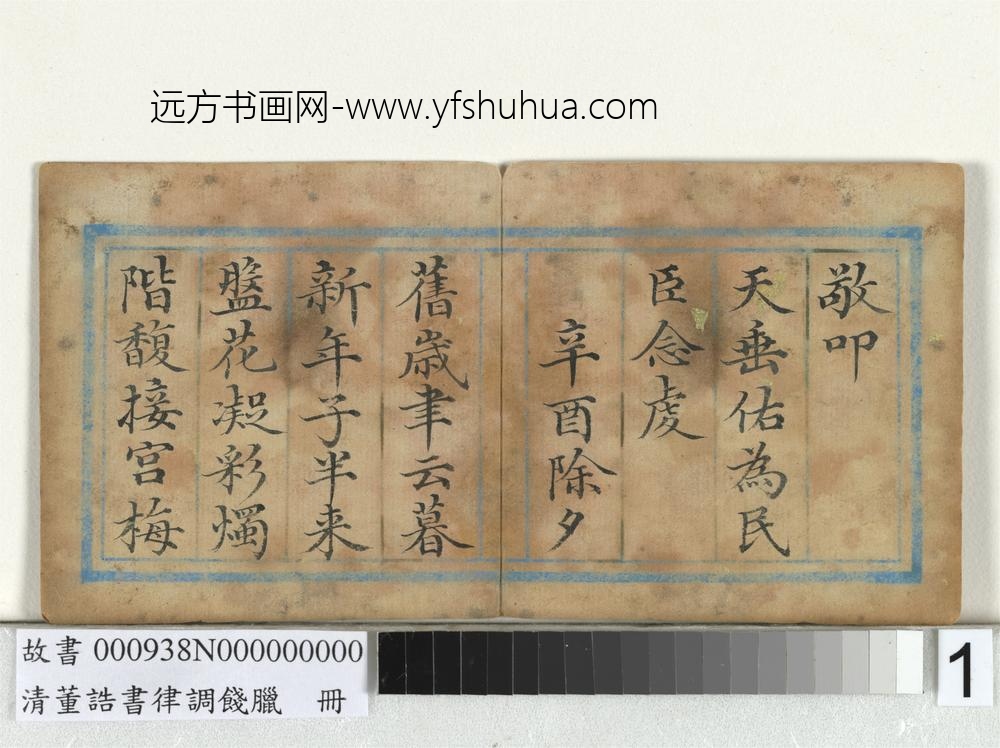 远方书画网-www.yfshuhua.com
敬叩
天垂佑為民
臣念虔
辛酉除夕
舊歲聿云暮
新年子半来
盤花凝彩燭
階馥接宮梅
故書 000938N000000000
清董誥書律調餞臘 冊
1